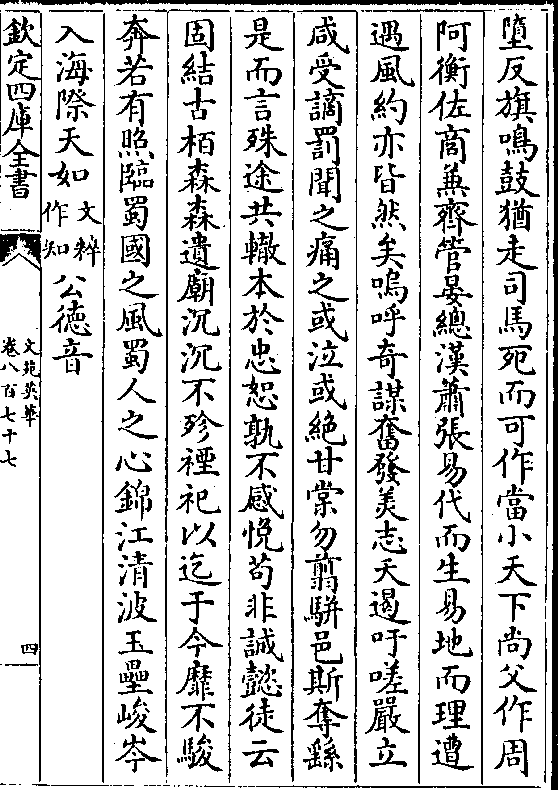 墮反旗鳴鼓猶走司馬死而可作當小天下尚父作周
阿衡佐商兼齊管晏總漢蕭張易代而生易地而理遭
遇風約亦皆然矣嗚呼奇謀奮發美志夭遏吁嗟嚴立
咸受謫罰聞之痛之或泣或絕甘棠勿翦駢邑斯奪繇
是而言殊途共轍本於忠恕孰不感悅苟非誠慤徒云
固結古栢森森遺廟沉沉不殄禋祀以迄于今靡不駿
奔若有照臨蜀國之風蜀人之心錦江清波玉壘峻岑
入海際天如文粹作知公德音
欽定四庫全書
文苑英華
卷八百七十七
四